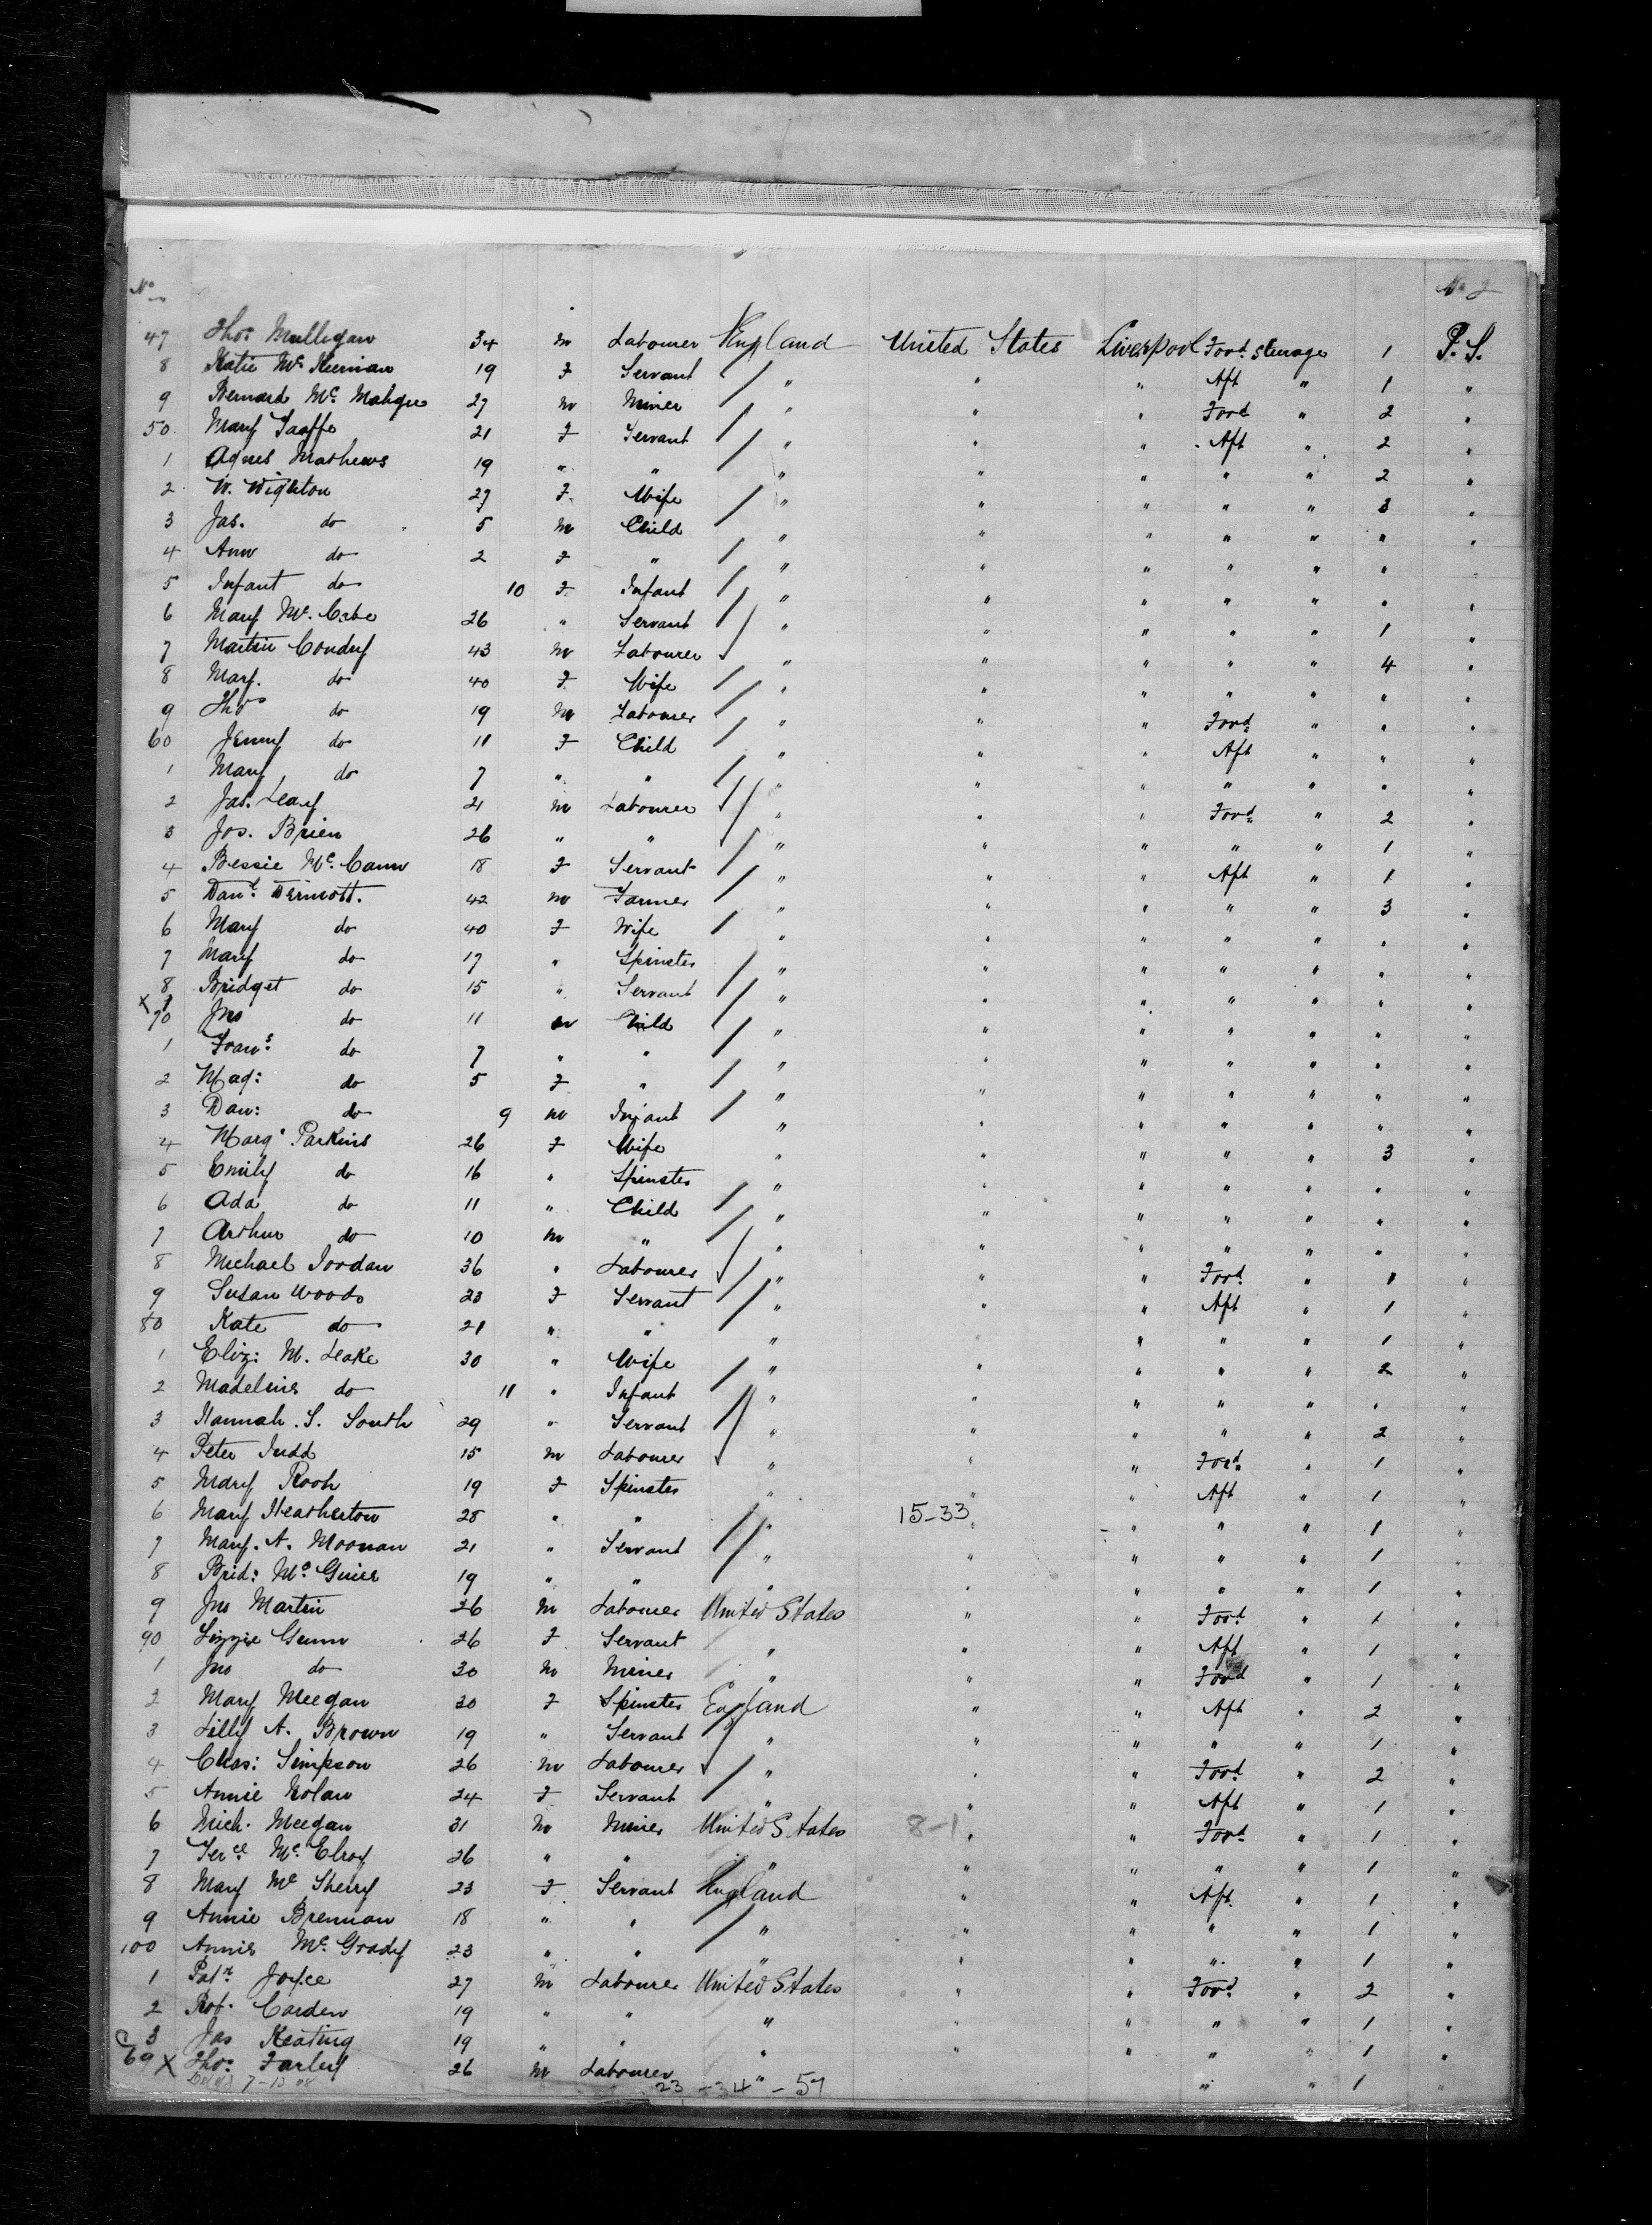 No. No. 2
47 Thos. Mulligan 34 m Labourer England United States Liverpool Ford. Steerage 1 P.S.
8 Katie Mc. Kiernan 19 F Servant " " " Aft " 1 "
9 Bernard Mc. 27 m Miner " " " Ford " 2 "
50 Mary Taaffe 21 F Servant " " " Aft " 2 "
1 Agnes Mathews 19 " " " " " " " 2 "
2 W. Wighton 27 F. Wife " " " " " 3 "
3 Jas. do 5 m Child " " " " " " "
4 Ann do 2 F " " " " " " " "
5 Infant do 10 F Infant " " " " " " "
6 Mary Mc. Cabe 26 " Servant " " " " " 1 "
7 Martin Condry 43 m Labourer " " " " " 4 "
8 Mary. do 40 F Wife " " " " " " "
9 Thos do 19 m Labourer " " " Ford. " " "
60 Jenny do 11 F Child " " " Aft " " "
1 Mary do 7 " " " " " " " " "
2 Jas. Leary 21 m Labourer " " " Ford. " 2 "
3 Jos. Brien 26 " " " " " " " 1 "
4 Bessie Mc. Cann 18 F Servant " " " Aft " 1 "
5 Danl. Dermott. 42 m Farmer " " " " " 3 "
6 Mary do 40 F Wife " " " " " " "
7 Mary do 17 " Spinster " " " " " " "
8 Bridget do 15 " Servant " " " " " " "
x 70 Jno do 11 m Child " " " " " " "
1 Frans. do 7 " " " " " " " " "
2 Mag: do 5 F " " " " " " " "
3 Dan: do 9 m Infant " " " " " " "
4 Marg. Parkins 26 F Wife " " " " " 3 "
5 Emily do 16 " Spinster " " " " " " "
6 Ada do 11 " Child " " " " " " "
7 Arthur do 10 m " " " " " " " "
8 Michael Jordan 36 " Labourer " " " Ford. " 1 "
9 Susan Woods 23 F Servant " " " Aft " 1 "
80 Kate do 21 " " " " " " " 1 "
1 Eliz: M. Leake 30 " Wife " " " " " 2 "
2 Madeline do 11 " Infant " " " " " " "
3 Hannah. S. South 29 " Servant " " " " " 2 "
4 Peter Judd 15 m Labourer " " " Ford. " 1 "
5 Mary Rooh 19 F Spinster " " " Aft " 1 "
6 Mary Heatherton 28 " " " 15-33 " " " " 1 "
7 Mary. A. Moonan 21 " Servant " " " " " 1 "
8 Brid: Mc. Guier 19 " " " " " " " 1 "
9 Jno Martin 26 m Labourer United States " " Ford. " 1 "
90 Lizzie Gunn 26 F Servant " " " Aft " 1 "
1 Jno do 30 m Miner " " " Ford " 1 "
2 Mary Meegan 20 F Spinster England " " Aft " 2 "
3 Lilly A. Brown 19 " Servant " " " " " 1 "
4 Chas: Simpson 26 m Labourer " " " Ford. " 2 "
5 Annie Nolan 24 F Servant " " " Aft " 1 "
6 Mich. Meegan 31 m Miner United States 8-1 " " Ford. " 1 "
7 Terce Mc. Elroy 26 " " " " " " " 1 "
8 Mary Mc Sherry 23 F Servant England " " Aft. " 1 "
9 Annie Brennan 18 " " " " " " " 1 "
100 Annie Mc. Grady 23 " " " " " " " 1 "
1 Patk. Joyce 27 m Labourer United States " " Ford. " 2 "
2 Rot. Carden 19 " " " " " " " 1 "
3 Jas Keating 19 " " " " " " " 1 "
69 X Thos. Farley 26 m Labourer " " " 1 "
7-13 08 23 - 34 - 57